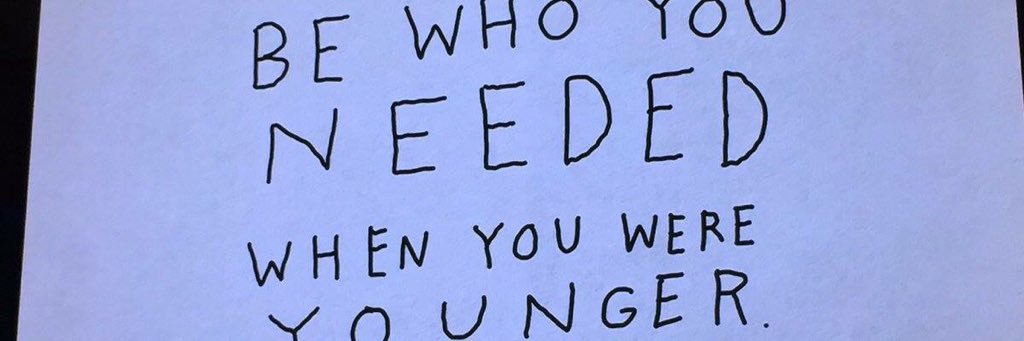 BE WHO YOU
NEEDED
WHEN YOU WERE
YOUNGER.